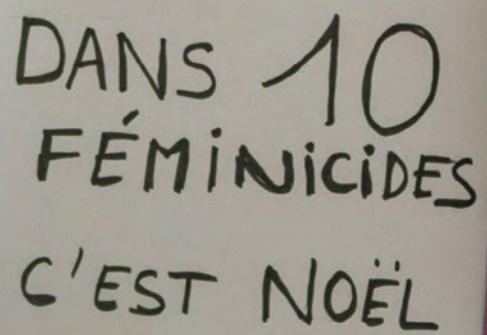 DANS 10
FÉMINICIDES
C'EST NOËL